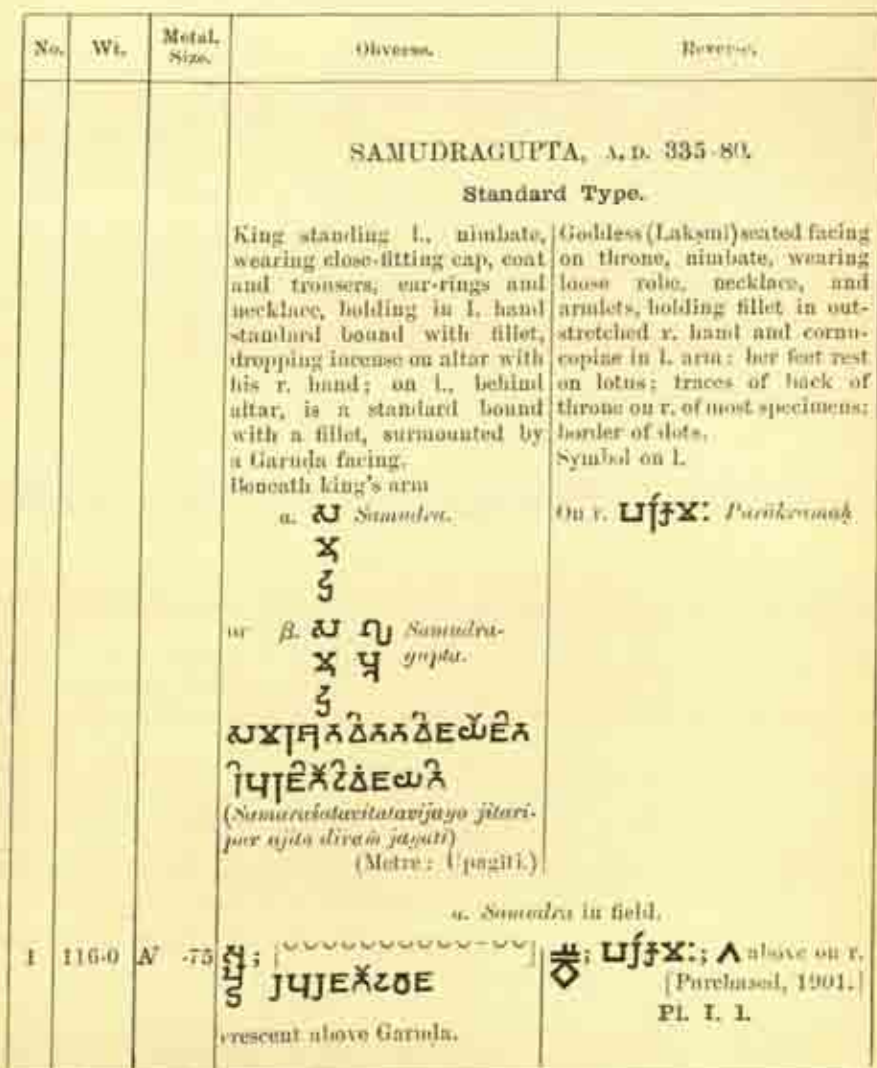 No. Wt. Metal. Size. Obverse. Reverse.
SAMUDRAGUPTA, A.D. 335-80.
Standard Type.
King standing l., nimbate,
wearing close-fitting cap, coat
and trousers, ear-rings and
necklace, holding in l. hand
standard bound with fillet,
dropping incense on altar with
his r. hand; on l., behind
altar, is a standard bound
with a fillet, surmounted by
a Garuḍa facing.
Beneath king's arm
α. Samudra.
or β. Samudra-
gupta.
(Samaraśatavitatavijayo jitari-
pur ajito divaṁ jayati)
(Metre: Upagīti.)
Goddess (Lakṣmī) seated facing
on throne, nimbate, wearing
loose robe, necklace, and
armlets, holding fillet in out-
stretched r. hand and cornu-
copiae in l. arm; her feet rest
on lotus; traces of back of
throne on r. of most specimens;
border of dots.
Symbol on l.
On r. Parākramaḥ
α. Samudra in field.
1 116·0 N ·75
crescent above Garuḍa.
above on r.
[Purchased, 1901.]
Pl. I. 1.